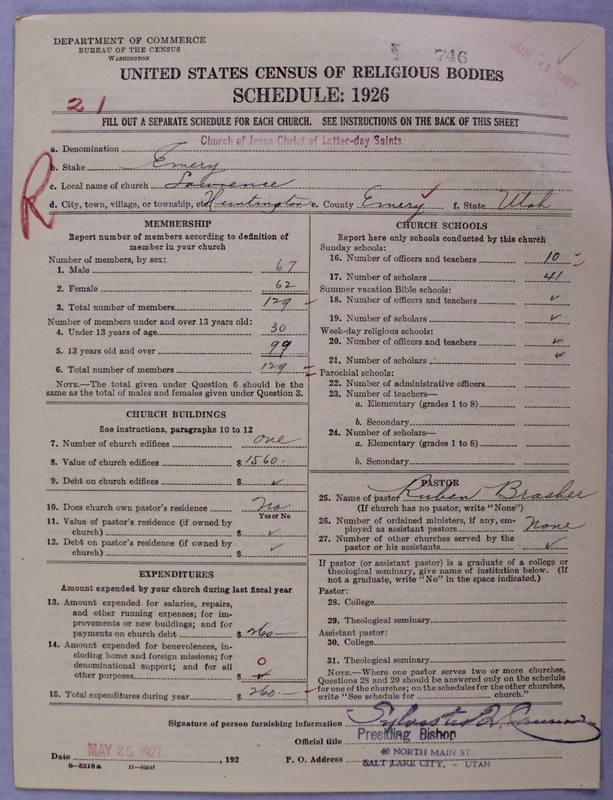 DEPARTMENT OF COMMERCE
BUREAU OF THE CENSUS
WASHINGTON
746
JUN 1 1927
UNITED STATES CENSUS OF RELIGIOUS BODIES
SCHEDULE: 1926
21
FILL OUT A SEPARATE SCHEDULE FOR EACH CHURCH. SEE INSTRUCTIONS ON THE BACK OF THIS SHEET
a. Denomination Church of Jesus Christ of Latter-day Saints
b. Stake Emery
c. Local name of church Lawrence
d. City, town, village, or township, etc. Huntington e. County Emery f. State Utah
R
MEMBERSHIP
Report number of members according to definition of
member in your church
Number of members, by sex:
1. Male 67
2. Female 62
3. Total number of members 129
Number of members under and over 13 years old:
4. Under 13 years of age 30
5. 13 years old and over 99
6. Total number of members 129
NOTE.—The total given under Question 6 should be the
same as the total of males and females given under Question 3.
CHURCH BUILDINGS
See instructions, paragraphs 10 to 12
7. Number of church edifices one
8. Value of church edifices $ 1560.
9. Debt on church edifices $ ✓
10. Does church own pastor's residence No
Yes or No
11. Value of pastor's residence (if owned by
church) $ ✓
12. Debt on pastor's residence (if owned by
church) $ ✓
EXPENDITURES
Amount expended by your church during last fiscal year
13. Amount expended for salaries, repairs,
and other running expenses; for im-
provements or new buildings; and for
payments on church debt $ 260—
14. Amount expended for benevolences, in-
cluding home and foreign missions; for
denominational support; and for all
other purposes $ 0
15. Total expenditures during year $ 260—
CHURCH SCHOOLS
Report here only schools conducted by this church
Sunday schools:
16. Number of officers and teachers 10
17. Number of scholars 41
Summer vacation Bible schools:
18. Number of officers and teachers ✓
19. Number of scholars ✓
Week-day religious schools:
20. Number of officers and teachers ✓
21. Number of scholars ✓
Parochial schools:
22. Number of administrative officers
23. Number of teachers—
a. Elementary (grades 1 to 8)
b. Secondary
24. Number of scholars—
a. Elementary (grades 1 to 8)
b. Secondary
PASTOR
25. Name of pastor Ruben Brasher
(If church has no pastor, write "None")
26. Number of ordained ministers, if any, em-
ployed as assistant pastors None
27. Number of other churches served by the
pastor or his assistants ✓
If pastor (or assistant pastor) is a graduate of a college or
theological seminary, give name of institution below. (If
not a graduate, write "No" in the space indicated.)
Pastor:
28. College
29. Theological seminary
Assistant pastor:
30. College
31. Theological seminary
NOTE.—Where one pastor serves two or more churches,
Questions 28 and 29 should be answered only on the schedule
for one of the churches; on the schedules for the other churches,
write "See schedule for church."
Signature of person furnishing information Sylvester Q. Cannon
Official title Presiding Bishop
Date MAY 25 1927, 192 P. O. Address 40 NORTH MAIN ST.
SALT LAKE CITY, - UTAH
8—5518a 11—6004f